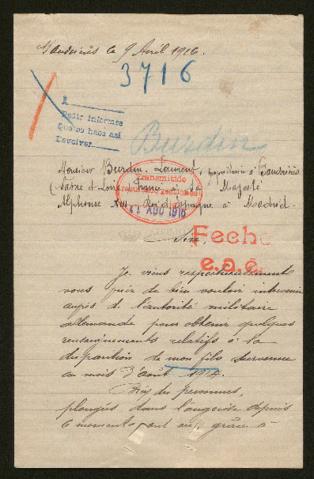 le 9 Avril 1916.
3716
A
Pedir informes
Que se haga así
Devolver
Burdin
Monsieur Burdin Laurent, propriétaire à
(Saône et Loire, France) à Sa Majesté
Alphonse XIII Roi d'Espagne à Madrid.
Transmitido
11 AGO 1916
Sire,
Fecho
e.a.c.
Je vous respectueusement
vous prier de bien vouloir intervenir
auprès de l'autorité militaire
allemande pour obtenir quelques
renseignements relatifs à la
disparition de mon fils survenue
au mois d'août 1914.
des personnes,
plongées dans l'angoisse depuis
ce moment ont eu, grâce à